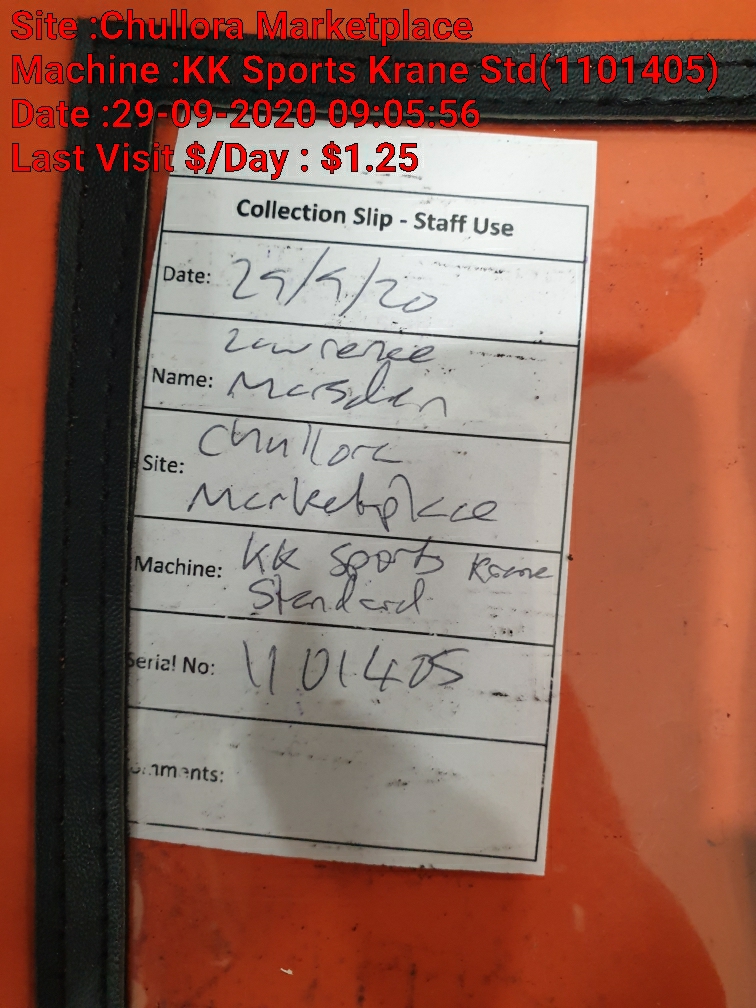 Site :Chullora Marketplace
Machine :KK Sports Krane Std(1101405)
Date :29-09-2020 09:05:56
Last Visit $/Day : $1.25
Collection Slip - Staff Use
Date: 29/9/20
Lawrence
Name: Marsden
Chullora
Site:
Marketplace
Machine: KK Sports Krane
Standard
Serial No: 1101405
omments: